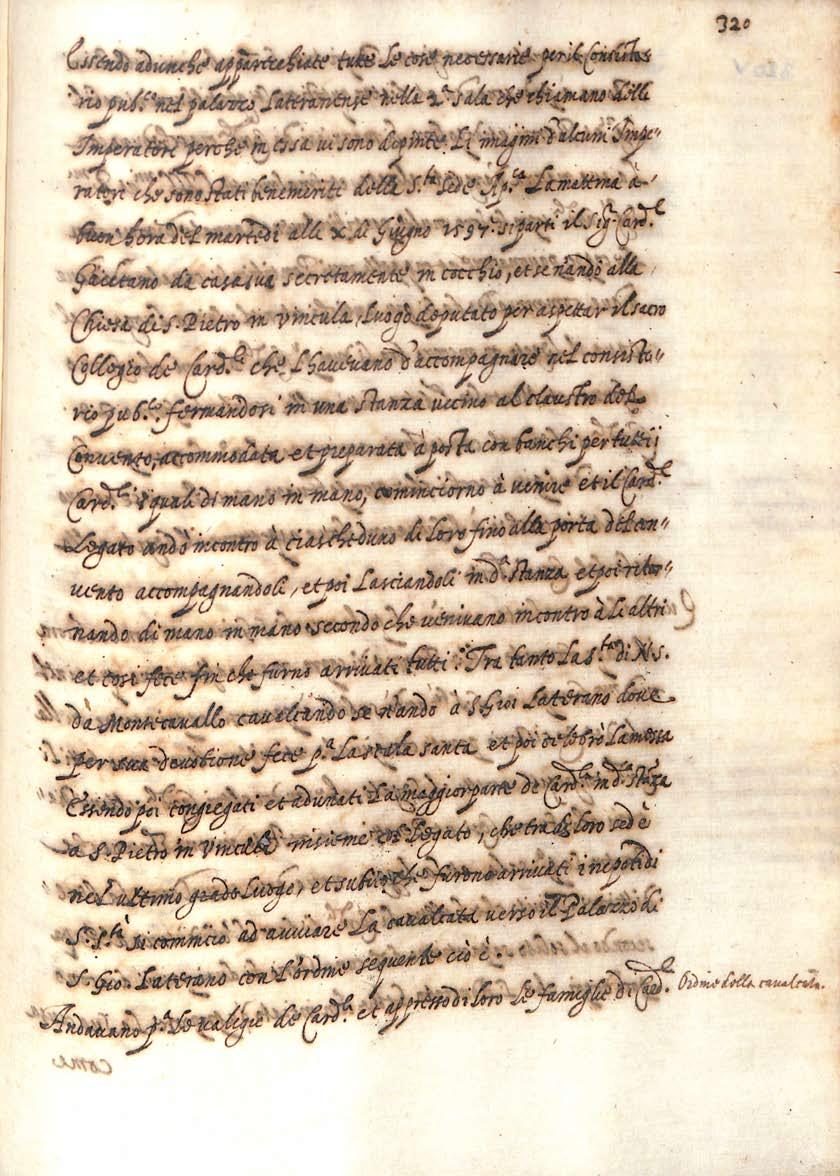 320
Essendo adunche apparecchiate tutte le cose necessarie per il Consisto=
rio pub.co nel palazzo Lateranense nella 2.a sala che chiamano delli
Imperatori perche in essa vi sono depinte Li imagini d'alcuni Impe"
ratori che sono stati benemeriti della S.ta Sede Ap.ca La mattina à
buon hora del martedi alli X di Giugno 1597. si partì il Sig.r Card.le
Gaetano da casa sua secretamente in cocchio, et se n'andò alla
Chiesa di S. Pietro in Vincula, luogo deputato per aspettar il sacro
Collegio de Card.li che l'havevano d'accompagnare nel consisto"
rio pub.co fermandosi in una stanza vicino al claustro del
Convento, accommodata et preparata à posta con banchi per tutti i
Card.li i quali di mano in mano, cominciorno à venire et il Card.le
Legato andò incontro à ciascheduno di loro fino alla porta del con"
vento accompagnandoli, et poi Lasciandoli in d.a stanza et poi ritor"
nando di mano in mano secondo che venivano incontro à li altri
et così fece fin che furno arrivati tutti. Tra tanto La S.tà di N.S.
da Montecavallo cavalcando se n'andò à S. Gioi Laterano dove
per sua devotione fece p.a La scala santa et poi celebrò La messa
Essendo poi congregati et adunati La maggior parte de Card.li in d.a stanza
a S. Pietro in Vincula insieme col Legato, che tra di loro sedè
nel ultimo grado luogo, et subito che furono arrivati i nepoti di
S. S.tà si cominciò ad avviare La cavalcata verso il Palazzo di
S. Gio. Laterano con l'ordine sequente cio è.
Andavano p.a le valigie de Card.li et appresso di loro le famiglie di Card.li
Ordine della cavalcata.
come